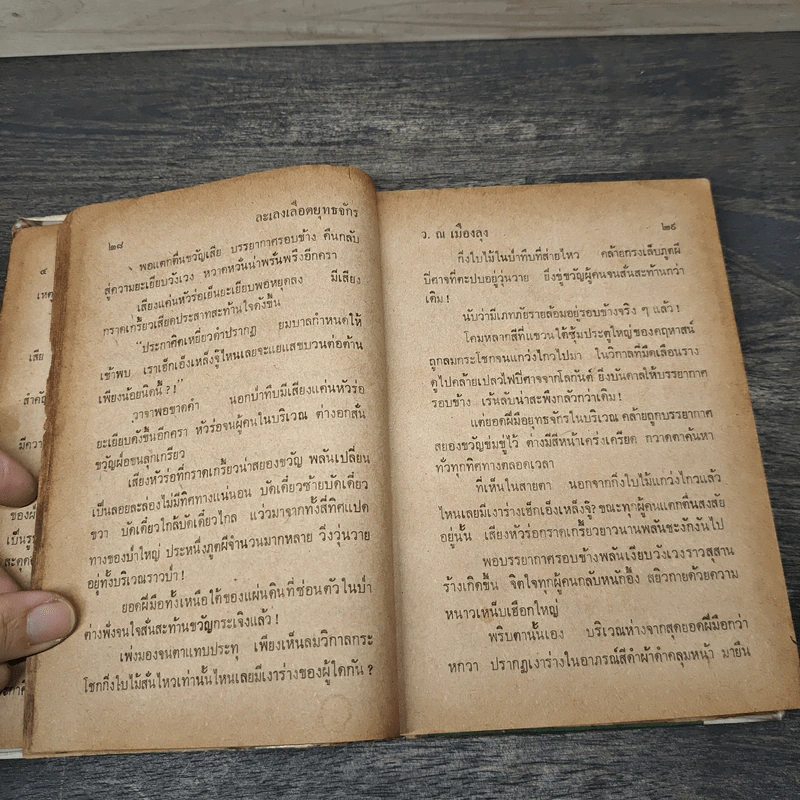 ๒๘
ละเลงเลือดยุทธจักร
พอแตกตื่นขวัญเสีย บรรยากาศรอบข้าง คืนกลับ
สู่ความยะเยียบวังเวง หวาดหวั่นน่าพรั่นพรึงอีกครา
เสียงแค่นหัวร่อเย็นยะเยียบพอหยุดลง มีเสียง
กราดเกรี้ยวเสียดประสาทสะท้านใจดังขึ้น
"ประกาศิตเหยี่ยวดำปรากฏ ยมบาลกำหนดให้
เข้าพบ เราเฮ็กเอ็งเหล็งจู๊ไหนเลยจะแยแสขบวนต่อต้าน
เพียงน้อยนิดนี้ ?!"
วาจาพอขาดคำ นอกป่าทึบมีเสียงแค่นหัวร่อ
ยะเยียบดังขึ้นอีกครา หัวร่อจนผู้คนในบริเวณ ต่างอกสั่น
ขวัญผ่อขนลุกเกรียว
เสียงหัวร่อที่กราดเกรี้ยวน่าสยองขวัญ พลันเปลี่ยน
เป็นลอยละล่องไม่มีทิศทางแน่นอน บัดเดี๋ยวซ้ายบัดเดี๋ยว
ขวา บัดเดี๋ยวใกล้บัดเดี๋ยวไกล แว่วมาจากทั้งสี่ทิศแปด
ทางของป่าใหญ่ ประหนึ่งภูตผีจำนวนมากหลาย วิ่งวุ่นวาย
อยู่ทั้งบริเวณราวป่า !
ยอดฝีมือทั้งเหนือใต้ของแผ่นดินที่ซ่อนตัวในป่า
ต่างฟังจนใจสั่นสะท้านขวัญกระเจิงแล้ว !
เพ่งมองจนตาแทบประทุ เพียงเห็นลมวิกาลกระ
โชกกิ่งใบไม้สั่นไหวเท่านั้นไหนเลยมีเงาร่างของผู้ใดกัน ?
ว. ณ เมืองลุง
๒๙
กิ่งใบไม้ในป่าทึบที่ส่ายไหว คล้ายกรงเล็บภูตผี
ปีศาจที่ตะปบอยู่วุ่นวาย ยิ่งขู่ขวัญผู้คนจนสั่นสะท้านกว่า
เดิม !
นับว่ามีเภทภัยรายล้อมอยู่รอบข้างจริง ๆ แล้ว !
โคมหลากสีที่แขวนใต้ซุ้มประตูใหญ่ของคฤหาสน์
ถูกลมกระโชกจนแกว่งไกวไปมา ในวิกาลที่มืดเลือนราง
ดูไปคล้ายเปลวไฟปีศาจจากโลกันต์ ยิ่งบันดาลให้บรรยากาศ
รอบข้าง เร้นลับน่าสะพึงกลัวกว่าเดิม !
แต่ยอดฝีมือยุทธจักรในบริเวณ คล้ายถูกบรรยากาศ
สยองขวัญข่มขู่ไว้ ต่างมีสีหน้าเคร่งเครียด กวาดตาค้นหา
ทั่วทุกทิศทางตลอดเวลา
ที่เห็นในสายตา นอกจากกิ่งใบไม้แกว่งไกวแล้ว
ไหนเลยมีเงาร่างเฮ็กเอ็งเหล็งจู๊? ขณะทุกผู้คนแตกตื่นสงสัย
อยู่นั้น เสียงหัวร่อกราดเกรี้ยวยาวนานพลันชะงักงันไป
พอบรรยากาศรอบข้างพลันเงียบวังเวงราวสุสาน
ร้างเกิดขึ้น จิตใจทุกผู้คนกลับหนักอึ้ง สยิวกายด้วยความ
หนาวเหน็บเฮือกใหญ่
พริบตานั้นเอง บริเวณห่างจากสุดยอดฝีมือกว่า
หกวา ปรากฏเงาร่างในอาภรณ์สีดำผ้าดำคลุมหน้า มายืน